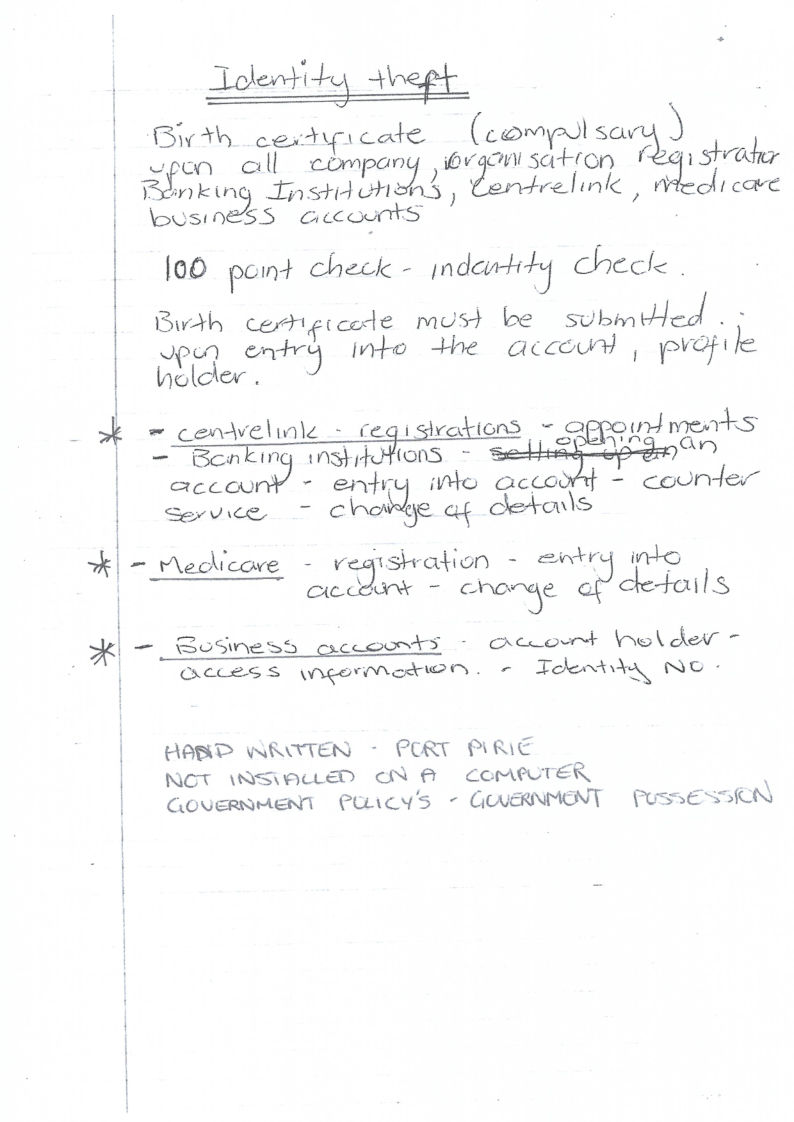 Identity theft
Birth certificate (compulsary)
upon all company, organisation registration
Banking Institutions, centrelink, medicare
business accounts
100 point check - indentity check.
Birth certificate must be submitted.
upon entry into the account, profile
holder.
* - centrelink - registrations - appointments
- Banking institutions - setting up an opening an
account - entry into account - counter
service - change of details
* - Medicare - registration - entry into
account - change of details
* - Business accounts - account holder -
access information. - Identity No.
HAND WRITTEN - PORT PIRIE
NOT INSTALLED ON A COMPUTER
GOVERNMENT POLICY'S - GOVERNMENT POSSESSION